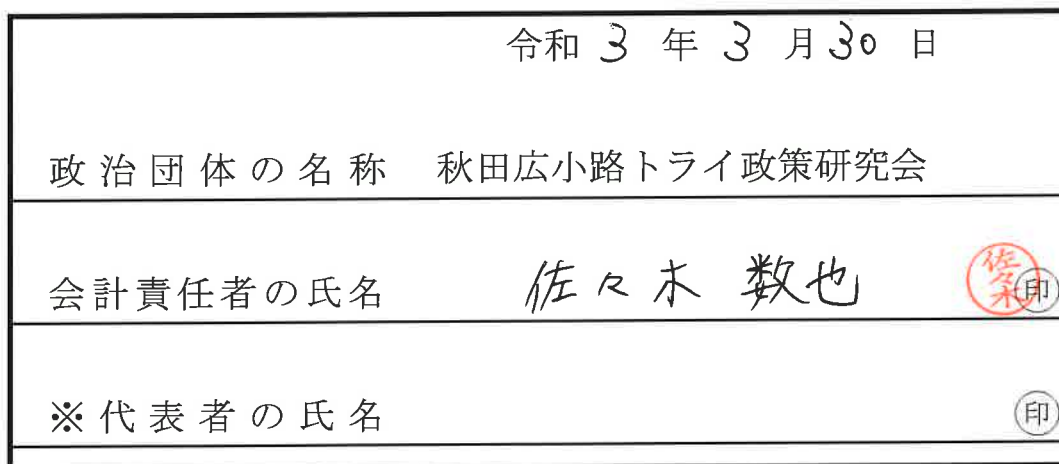 令和 3 年 3 月 30 日
政治団体の名称 秋田広小路トライ政策研究会
会計責任者の氏名 佐々木 数也 佐々木 印
※代表者の氏名 印